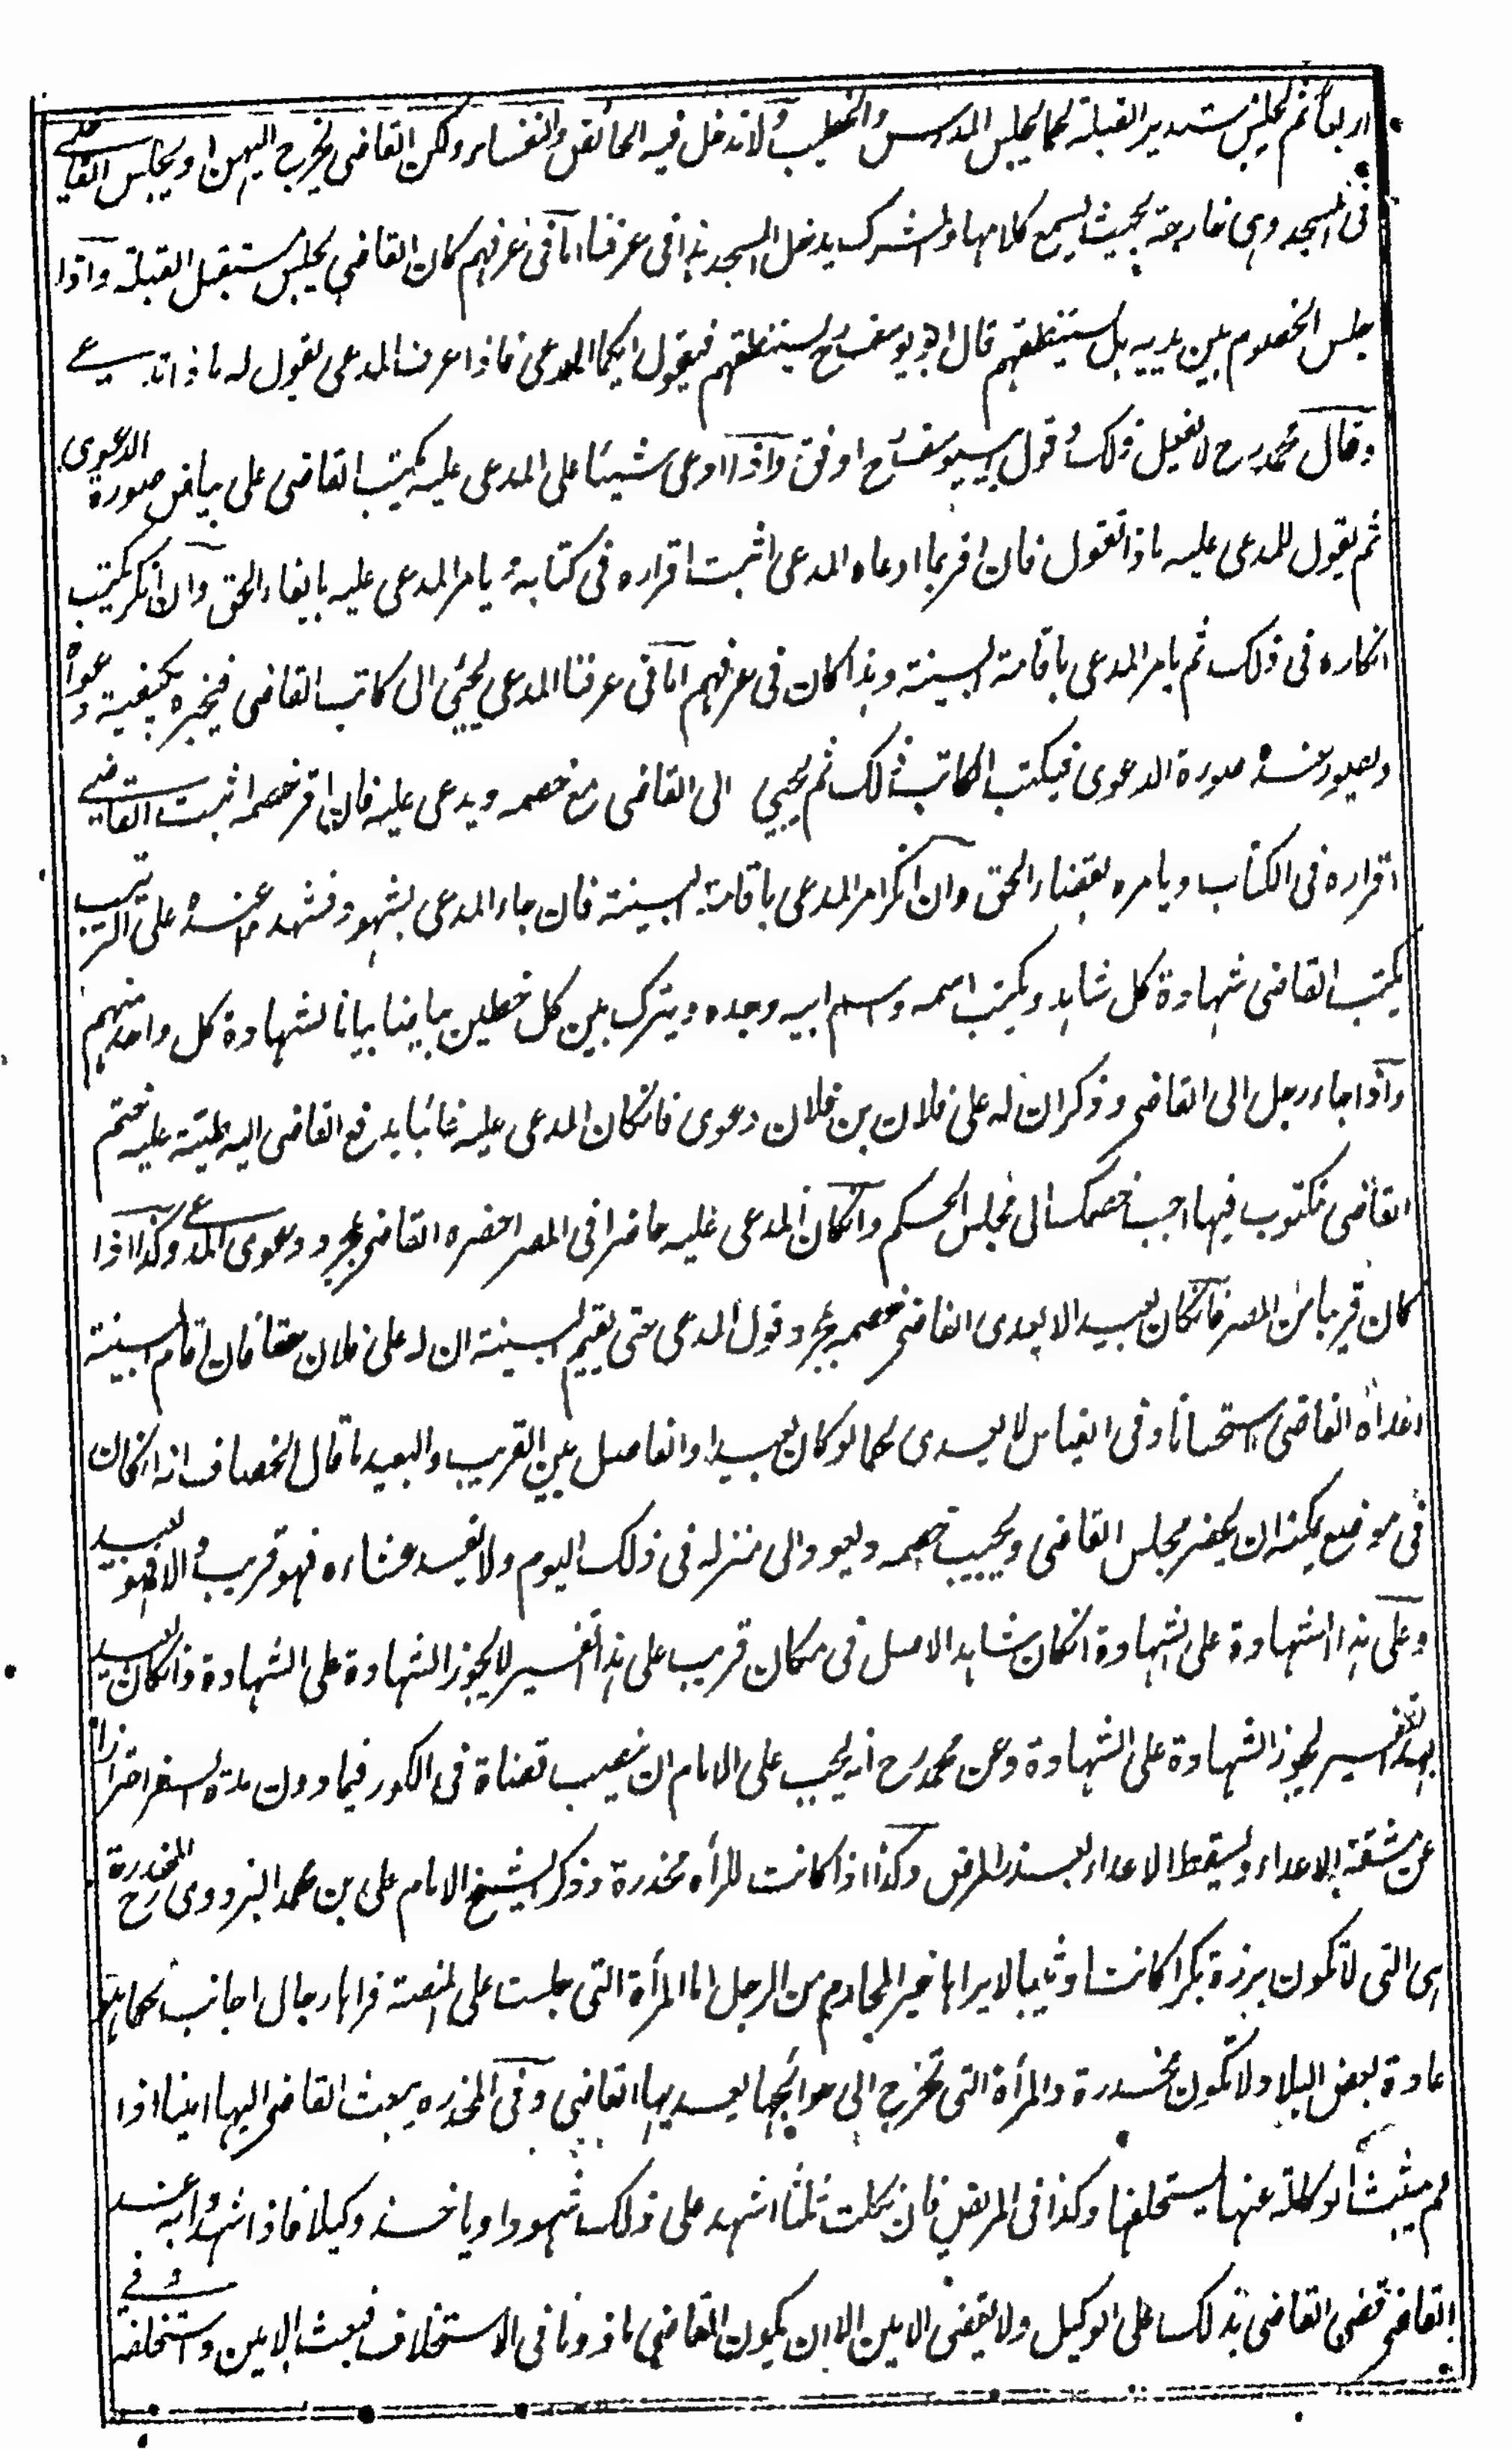 اربعا ثم يجلس مستدبر القبلة كما يجلس المدرس والخطيب ولا تدخل فيه الحائض والنفساء ولكن القاضى يخرج اليهن او يجلس القاضي
فى المسجد وهى خارجة بحيث يسمع كلامها والمشرك يدخل المسجد هذا فى عرفنا اما فى عرفهم كان القاضي يجلس مستقبل القبلة واذا
جلس الخصوم بين يديه هل يستنطقهم قال ابو يوسف رح يستنطقهم فيقول ايكما المدعى فاذا عرف المدعى يقول له ماذا تدعي
وقال محمد رح لا يفعل ذلك وقول ابى يوسف رح اوفق واذا ادعى شيئا على المدعى عليه يكتب القاضى على بياض صورة الدعوى
ثم يقول للمدعى عليه ماذا تقول فان اقر بما ادعاه المدعى اثبت اقراره فى كتابه و يامر المدعى عليه بايفاء الحق وان انكر يكتب
انكاره فى ذلك ثم يامر المدعى باقامة البينة وهذا كان فى عرفهم اما فى عرفنا المدعى يجئ الى كاتب القاضى فيخبره بكيفية دعواه
ويصور عنده صورة الدعوى فيكتب الكاتب ذلك ثم يجيئ الى القاضى مع خصمه ويدعى عليه فان اقر خصمه اثبت القاضي
اقراره فى الكتاب ويامره بقضاء الحق وان انكر امر المدعى باقامة البينة فان جاء المدعى بشهود فشهد عنده على الترتيب
يكتب القاضى شهادة كل شاهد ويكتب اسمه واسم ابيه وجده ويترك بين كل خطين بياضا بيانا لشهادة كل واحد منهم
واذا جاء رجل الى القاضى وذكر ان له على فلان بن فلان دعوى فانكان المدعى عليه غائبا يدفع القاضى اليه طينة عليه ختم
القاضى مكتوب فيها اجب خصمك الى مجلس الحكم وانكان المدعى عليه حاضرا فى المصر احضره القاضى بمجرد دعوى المدعي وكذا اذا
كان قريبا من المصر فانكان بعيدا لا يعدى القاضى خصمه بمجرد قول المدعى حتى يقيم البينة ان له على فلان حقا فان اقام البينة
اعداه القاضى استحسانا وفى القياس لا يعدى كما لو كان بعيدا والفاصل بين القريب والبعيد ما قال الخصاف انه انكان
فى موضع يمكنه ان يحضر مجلس القاضى ويجيب خصمه ويعود الى منزله فى ذلك اليوم ولا يفسد عشاءه فهو قريب والا فهو بعيد
وعلى هذا الشهادة على الشهادة انكان شاهد الاصل فى مكان قريب على هذا التفسير لا يجوز الشهادة على الشهادة وانكان بعيدا
بهذا التفسير يجوز الشهادة على الشهادة وعن محمد رح انه يجب على الامام ان ينصب قضاة فى الكور فيما دون مدة السفر احترازا
عن مشقة الاعداء ويسقط الاعداء بعذر المرض وكذا اذا كانت المرأه مخدرة وذكر الشيخ الامام على بن محمد البزدوى رح المخدرة
هى التى لا تكون برزة بكرا كانت او ثيبا لا يراها غير المحارم من الرجل اما المرأة التى جلست على المنصة فراها رجال اجانب كما هو
عادة بعض البلاد لا تكون مخدرة والمرأة التى تخرج الى حوائجها يعديها القاضي وفى المخدره يبعث القاضى اليها امينا اذا
لم يثبت الوكالة عنها يستحلفها وكذا فى المريض فان نكلت ثلثا اشهد على ذلك شهودا وياخذ وكيلا فاذا شهدوا به عند
القاضى قضى القاضى بذلك على الوكيل ولا يقضى الامين الا ان يكون القاضي ماذونا فى الاستخلاف فبعث الامين واستخلفه وفي